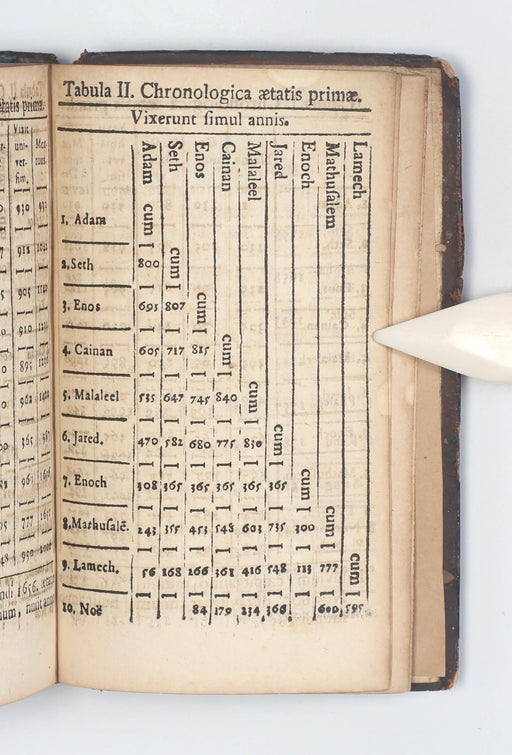 Tabula II. Chronologica ætatis primæ.
Vixerunt simul annis.
Adam Seth Enos Cainan Malaleel Jared Enoch Mathusalem Lamech
1. Adam cum
2. Seth 800 cum
3. Enos 695 807 cum
4. Cainan 605 717 815 cum
5. Malaleel 535 647 745 840 cum
6. Jared. 470 582 680 775 830 cum
7. Enoch 308 365 365 365 365 365 cum
8. Mathusalē. 243 355 453 548 603 735 300 cum
9. Lamech, 56 168 266 361 416 548 113 777 cum
10. Noë 84 179 234 366 600 595
ætatis primæ.
930
912
905
910
895
962
365
777
950